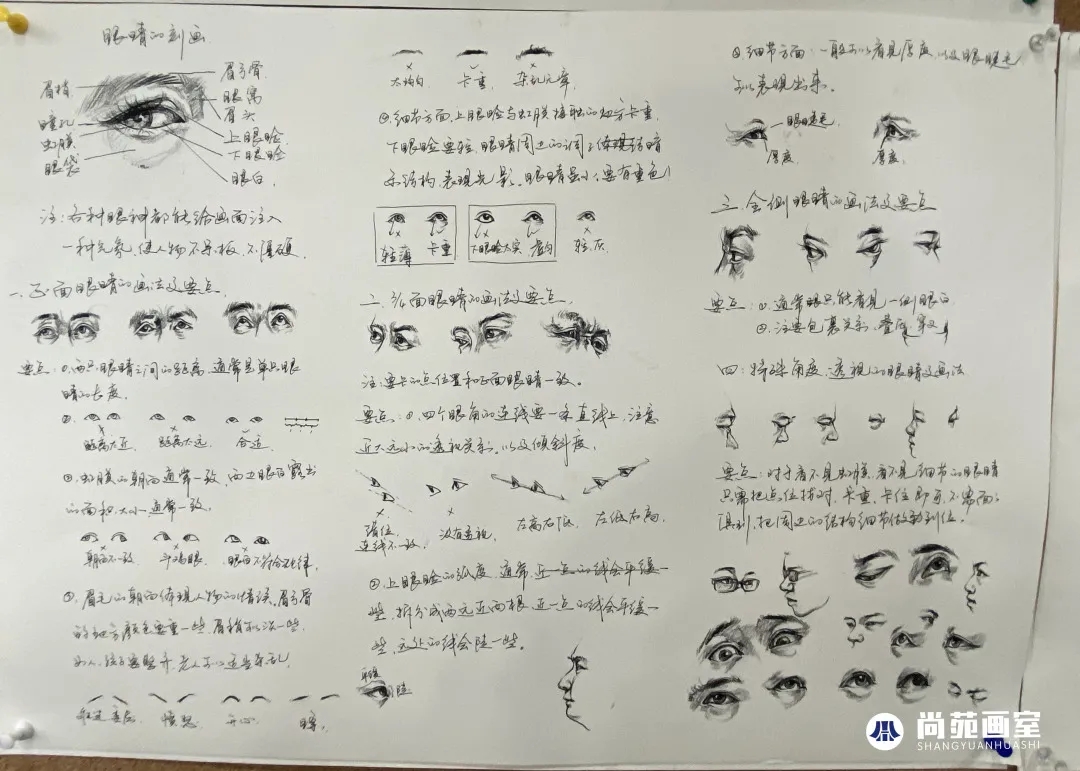 眼睛的刻画
眉梢
瞳孔
虹膜
眼袋
眉弓骨
眼窝
眉头
上眼睑
下眼睑
眼白
注:各种眼神都能给画面注入
一种气氛,使人物不呆板,不僵硬.
一.正面眼睛的画法及要点.
要点:①两只眼睛之间的距离,通常是单只眼
睛的长度.
②.
距离太近.
距离太远.
合适
③虹膜的朝向通常一致,两边眼白露出
的面积,大小通常一致.
朝向不一致
斗鸡眼.
眼白不符合规律.
③.眉毛的朝向体现人物的情绪,眉弓骨
的地方颜色要重一些,眉梢可以淡一些.
愤怒
开心
太均匀
卡重.
杂乱无章.
④细节方面,上眼睑与虹膜接触的地方卡重.
下眼睑要轻,眼睛周边的调子体现转暗
示结构,表现光影.眼睛虽小,要有重色!
轻薄
卡重
下眼睑太实
虚匀
轻.灰
二.3/4面眼睛的画法及要点.
注:要卡的点位置和正面眼睛一致.
要点:①四个眼角的连线要一条直线上,注意
近大远小的透视关系,以及倾斜度.
错位.
连线不一致.
没有透视.
左高右低.
左低右高.
②上眼睑的弧度,通常近一点的线会平缓一
些,拆分成两远近两根,近一点的线会平缓一
些,远处的线会陡一些.
平缓
陡
③细节方面:一般可以看见厚度,以及眼睫毛
可以表现出来.
眼睫毛
厚度.
厚度.
三.全侧眼睛的画法及要点
要点:①通常眼只能看见一侧眼白
②.注意包裹关系.
四:特殊角度,透视的眼睛及画法
要点:对于看不见虹膜,看不见细节的眼睛
只需把点位找对,卡重,卡位即可,不需面面
俱到,把周边的结构细节做到位.
尚苑画室
SHANGYUANHUASHI